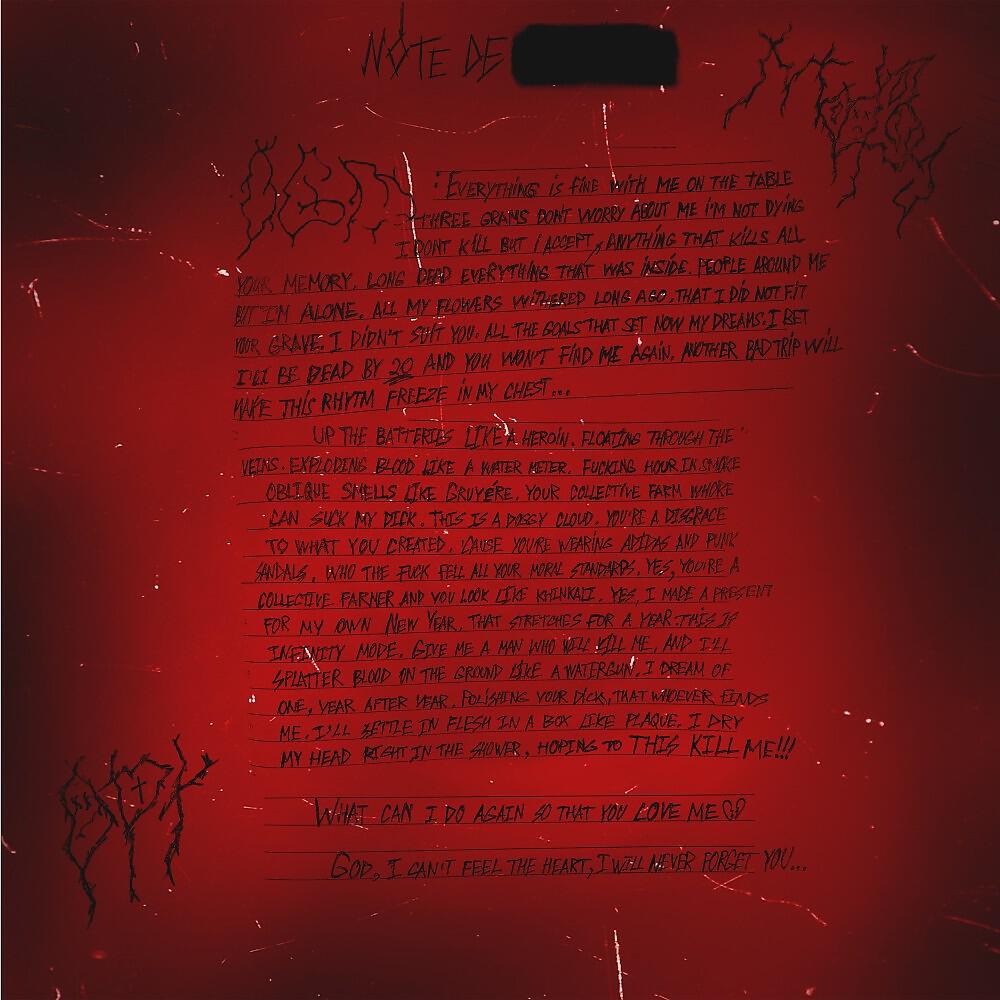 NOTE DE
: EVERYTHING IS FINE WITH ME ON THE TABLE
THREE GRAMS DON'T WORRY ABOUT ME I'M NOT DYING
I DONT KILL BUT I ACCEPT, ANYTHING THAT KILLS ALL
YOUR MEMORY. LONG DEAD EVERYTHING THAT WAS INSIDE. PEOPLE AROUND ME
BUT I'M ALONE. ALL MY FLOWERS WITHERED LONG AGO. THAT I DID NOT FIT
YOUR GRAVE. I DIDN'T SUIT YOU. ALL THE GOALS THAT SET NOW MY DREAMS. I BET
I'LL BE DEAD BY 20 AND YOU WON'T FIND ME AGAIN. ANOTHER BAD TRIP WILL
MAKE THIS RHYTM FREEZE IN MY CHEST...
UP THE BATTERIES LIKE A HEROIN. FLOATING THROUGH THE
VEINS. EXPLODING BLOOD LIKE A WATER METER. FUCKING HOUR IN SMOKE
OBLIQUE SMELLS LIKE GRUYÉRE. YOUR COLLECTIVE FARM WHORE
CAN SUCK MY DICK. THIS IS A DOGGY CLOUD. YOU'RE A DISGRACE
TO WHAT YOU CREATED. 'CAUSE YOURE WEARING ADIDAS AND PUNK
SANDALS. WHO THE FUCK FELL ALL YOUR MORAL STANDARDS. YES, YOU'RE A
COLLECTIVE FARMER AND YOU LOOK LIKE KHINKALI. YES, I MADE A PRESENT
FOR MY OWN NEW YEAR. THAT STRETCHES FOR A YEAR. THIS IS
INFINITY MODE. GIVE ME A MAN WHO WILL KILL ME, AND I'LL
SPLATTER BLOOD ON THE GROUND LIKE A WATERGUN. I DREAM OF
ONE, YEAR AFTER YEAR. POLISHING YOUR DICK, THAT WHOEVER FINDS
ME. I'LL SETTLE IN FLESH IN A BOX LIKE PLAQUE. I DRY
MY HEAD RIGHT IN THE SHOWER, HOPING TO THIS KILL ME!!!
WHAT CAN I DO AGAIN SO THAT YOU LOVE ME
GOD, I CAN'T FEEL THE HEART, I WILL NEVER FORGET YOU...